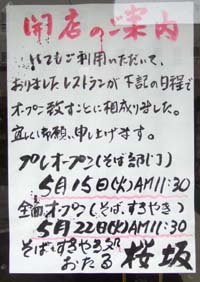 開店のご案内
いつもご利用いただいて、
おりましたレストランが下記の日程で
オープン致すことに相成りました。
宜しくお願い申し上げます。
プレオープン(そば部門)
5月15日(火)AM11:30
全面オープン(そば、すきやき)
5月22日(火)AM11:30
そば、すきやき処
おたる 桜坂